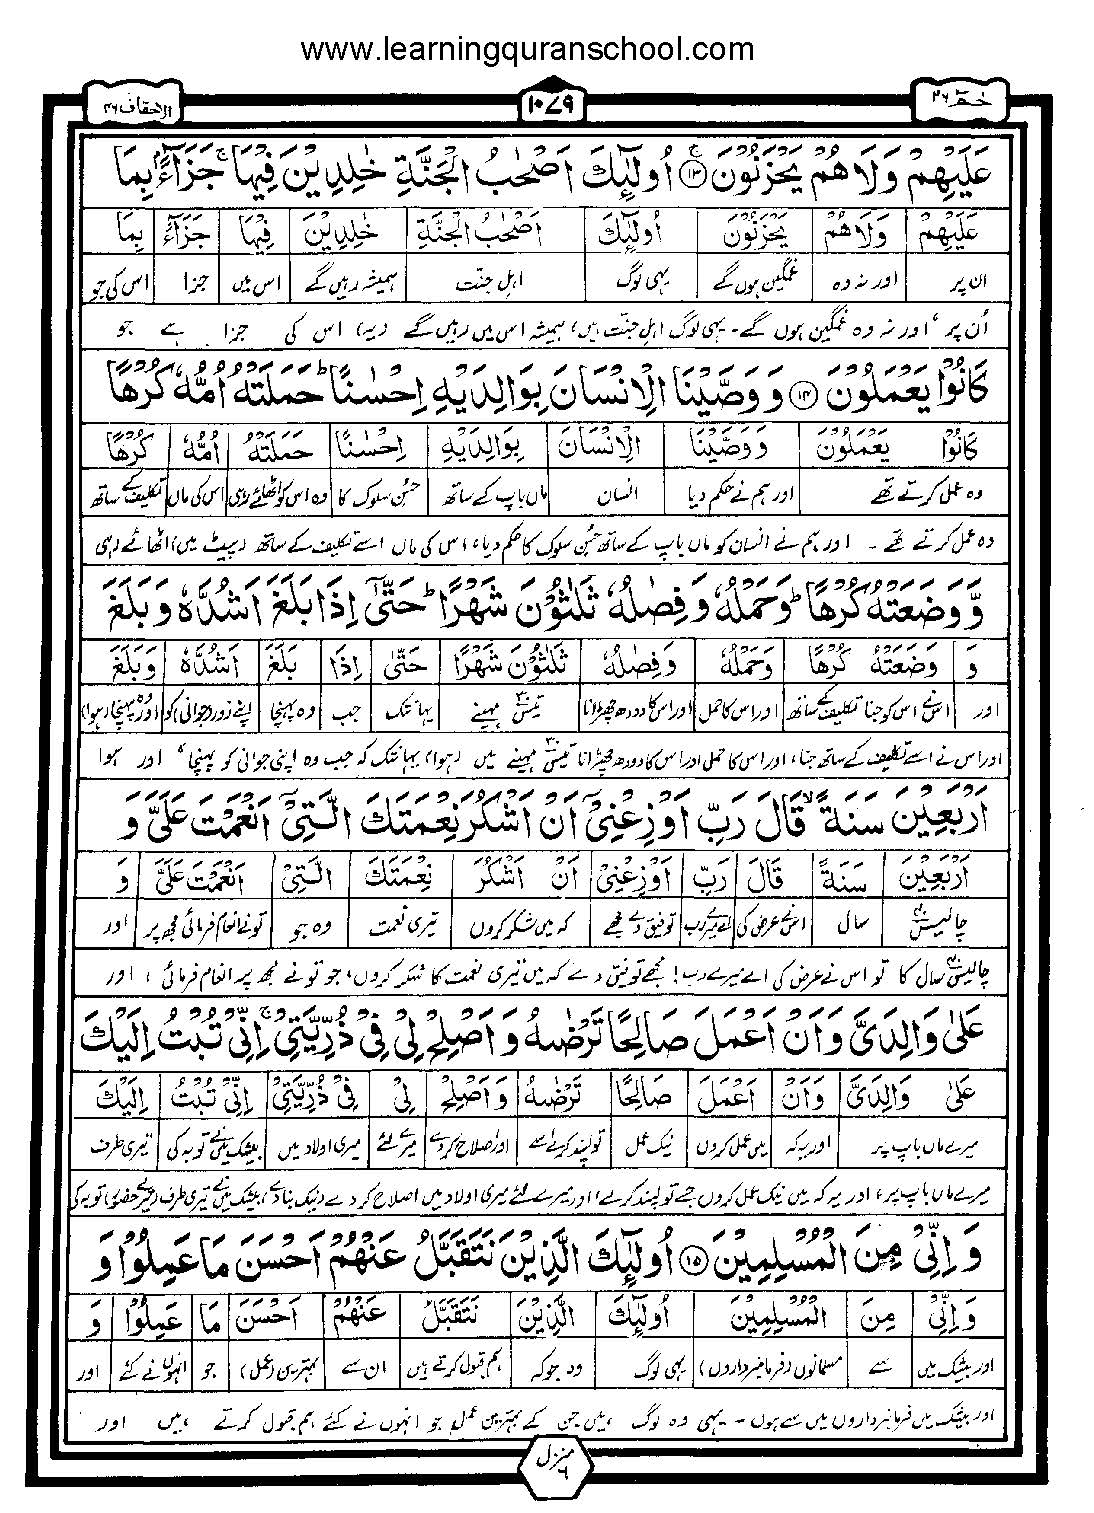 www.learningquranschool.com
حٰم ٢٦
١٠٧٩
الاحقاف ٤٦
عَلَيْهِمْ وَلَا هُمْ يَحْزَنُوْنَ ۚ﴿١٣﴾ اُولٰٓئِكَ اَصْحٰبُ الْجَنَّةِ خٰلِدِيْنَ فِيْهَا ۚ جَزَآءًۢ بِمَا
عَلَيْهِمْ وَلَا هُمْ يَحْزَنُوْنَ اُولٰٓئِكَ اَصْحٰبُ الْجَنَّةِ خٰلِدِيْنَ فِيْهَا جَزَآءًۢ بِمَا
ان پر اور نہ وہ غمگین ہوں گے یہی لوگ اہل جنت ہمیشہ رہیں گے اس میں جزا اس کی جو
اُن پر، اور نہ وہ غمگین ہوں گے۔ یہی لوگ اہل جنت ہیں، ہمیشہ اس میں رہیں گے (یہ) اس کی جزا ہے جو
كَانُوْا يَعْمَلُوْنَ ﴿١٤﴾ وَوَصَّيْنَا الْاِنْسَانَ بِوَالِدَيْهِ اِحْسٰنًا ؕ حَمَلَتْهُ اُمُّهٗ كُرْهًا
كَانُوْا يَعْمَلُوْنَ وَوَصَّيْنَا الْاِنْسَانَ بِوَالِدَيْهِ اِحْسٰنًا حَمَلَتْهُ اُمُّهٗ كُرْهًا
وہ عمل کرتے تھے اور ہم نے حکم دیا انسان ماں باپ کے ساتھ حسنِ سلوک کا وہ اس کو اٹھائے رہی اس کی ماں تکلیف کے ساتھ
وہ عمل کرتے تھے۔ اور ہم نے انسان کو ماں باپ کے ساتھ حُسنِ سلوک کا حکم دیا، اس کی ماں اسے تکلیف کے ساتھ (پیٹ میں) اٹھائے رہی
وَّوَضَعَتْهُ كُرْهًا ؕ وَحَمْلُهٗ وَفِصٰلُهٗ ثَلٰثُوْنَ شَهْرًا ؕ حَتّٰۤى اِذَا بَلَغَ اَشُدَّهٗ وَبَلَغَ
وَ وَضَعَتْهُ كُرْهًا وَحَمْلُهٗ وَفِصٰلُهٗ ثَلٰثُوْنَ شَهْرًا حَتّٰۤى اِذَا بَلَغَ اَشُدَّهٗ وَبَلَغَ
اور اس نے اس کو جنا تکلیف کے ساتھ اور اس کا حمل اور اس کا دودھ چھڑانا تیس ٣٠ مہینے یہانتک جب وہ پہنچا اپنے زور (جوانی) کو اور وہ پہنچا (ہوا)
اور اس نے اسے تکلیف کے ساتھ جنا، اور اس کا حمل اور اس کا دودھ چھڑانا تیس ٣٠ مہینے میں (ہوا) یہانتک کہ جب وہ اپنی جوانی کو پہنچا، اور ہوا
اَرْبَعِيْنَ سَنَةً ۙ قَالَ رَبِّ اَوْزِعْنِيْۤ اَنْ اَشْكُرَ نِعْمَتَكَ الَّتِيْۤ اَنْعَمْتَ عَلَيَّ وَ
اَرْبَعِيْنَ سَنَةً قَالَ رَبِّ اَوْزِعْنِيْۤ اَنْ اَشْكُرَ نِعْمَتَكَ الَّتِيْۤ اَنْعَمْتَ عَلَيَّ وَ
چالیس ٤٠ سال اس نے عرض کی اے میرے رب توفیق دے مجھے کہ میں شکر کروں تیری نعمت وہ جو تو نے انعام فرمائی مجھ پر اور
چالیس ٤٠ سال کا تو اس نے عرض کی اے میرے رب! مجھے توفیق دے کہ میں تیری نعمت کا شکر کروں، جو تو نے مجھ پر انعام فرمائی، اور
عَلٰى وَالِدَيَّ وَاَنْ اَعْمَلَ صَالِحًا تَرْضٰىهُ وَاَصْلِحْ لِيْ فِيْ ذُرِّيَّتِيْ ۚ اِنِّيْ تُبْتُ اِلَيْكَ
عَلٰى وَالِدَيَّ وَاَنْ اَعْمَلَ صَالِحًا تَرْضٰىهُ وَاَصْلِحْ لِيْ فِيْ ذُرِّيَّتِيْ اِنِّيْ تُبْتُ اِلَيْكَ
میرے ماں باپ پر اور یہ کہ میں عمل کروں نیک عمل تو پسند کرے اسے اور اصلاح کر دے میرے لئے میری اولاد میں بیشک میں نے توبہ کی تیری طرف
میرے ماں باپ پر، اور یہ کہ میں نیک عمل کروں جسے تو پسند کرے، اور میرے لئے میری اولاد میں اصلاح کر دے (نیک بنا دے)، بیشک میں نے تیری طرف (تیرے حضور) توبہ کی
وَاِنِّيْ مِنَ الْمُسْلِمِيْنَ ﴿١٥﴾ اُولٰٓئِكَ الَّذِيْنَ نَتَقَبَّلُ عَنْهُمْ اَحْسَنَ مَا عَمِلُوْا وَ
وَاِنِّيْ مِنَ الْمُسْلِمِيْنَ اُولٰٓئِكَ الَّذِيْنَ نَتَقَبَّلُ عَنْهُمْ اَحْسَنَ مَا عَمِلُوْا وَ
اور بیشک میں سے مسلمانوں (فرمانبرداروں) یہی لوگ وہ جو کہ ہم قبول کرتے ہیں ان سے بہترین (عمل) جو انہوں نے کئے اور
اور بیشک میں فرمانبرداروں میں سے ہوں۔ یہی وہ لوگ ہیں جن کے بہترین عمل جو انہوں نے کئے ہم قبول کرتے ہیں اور
منزل ٦